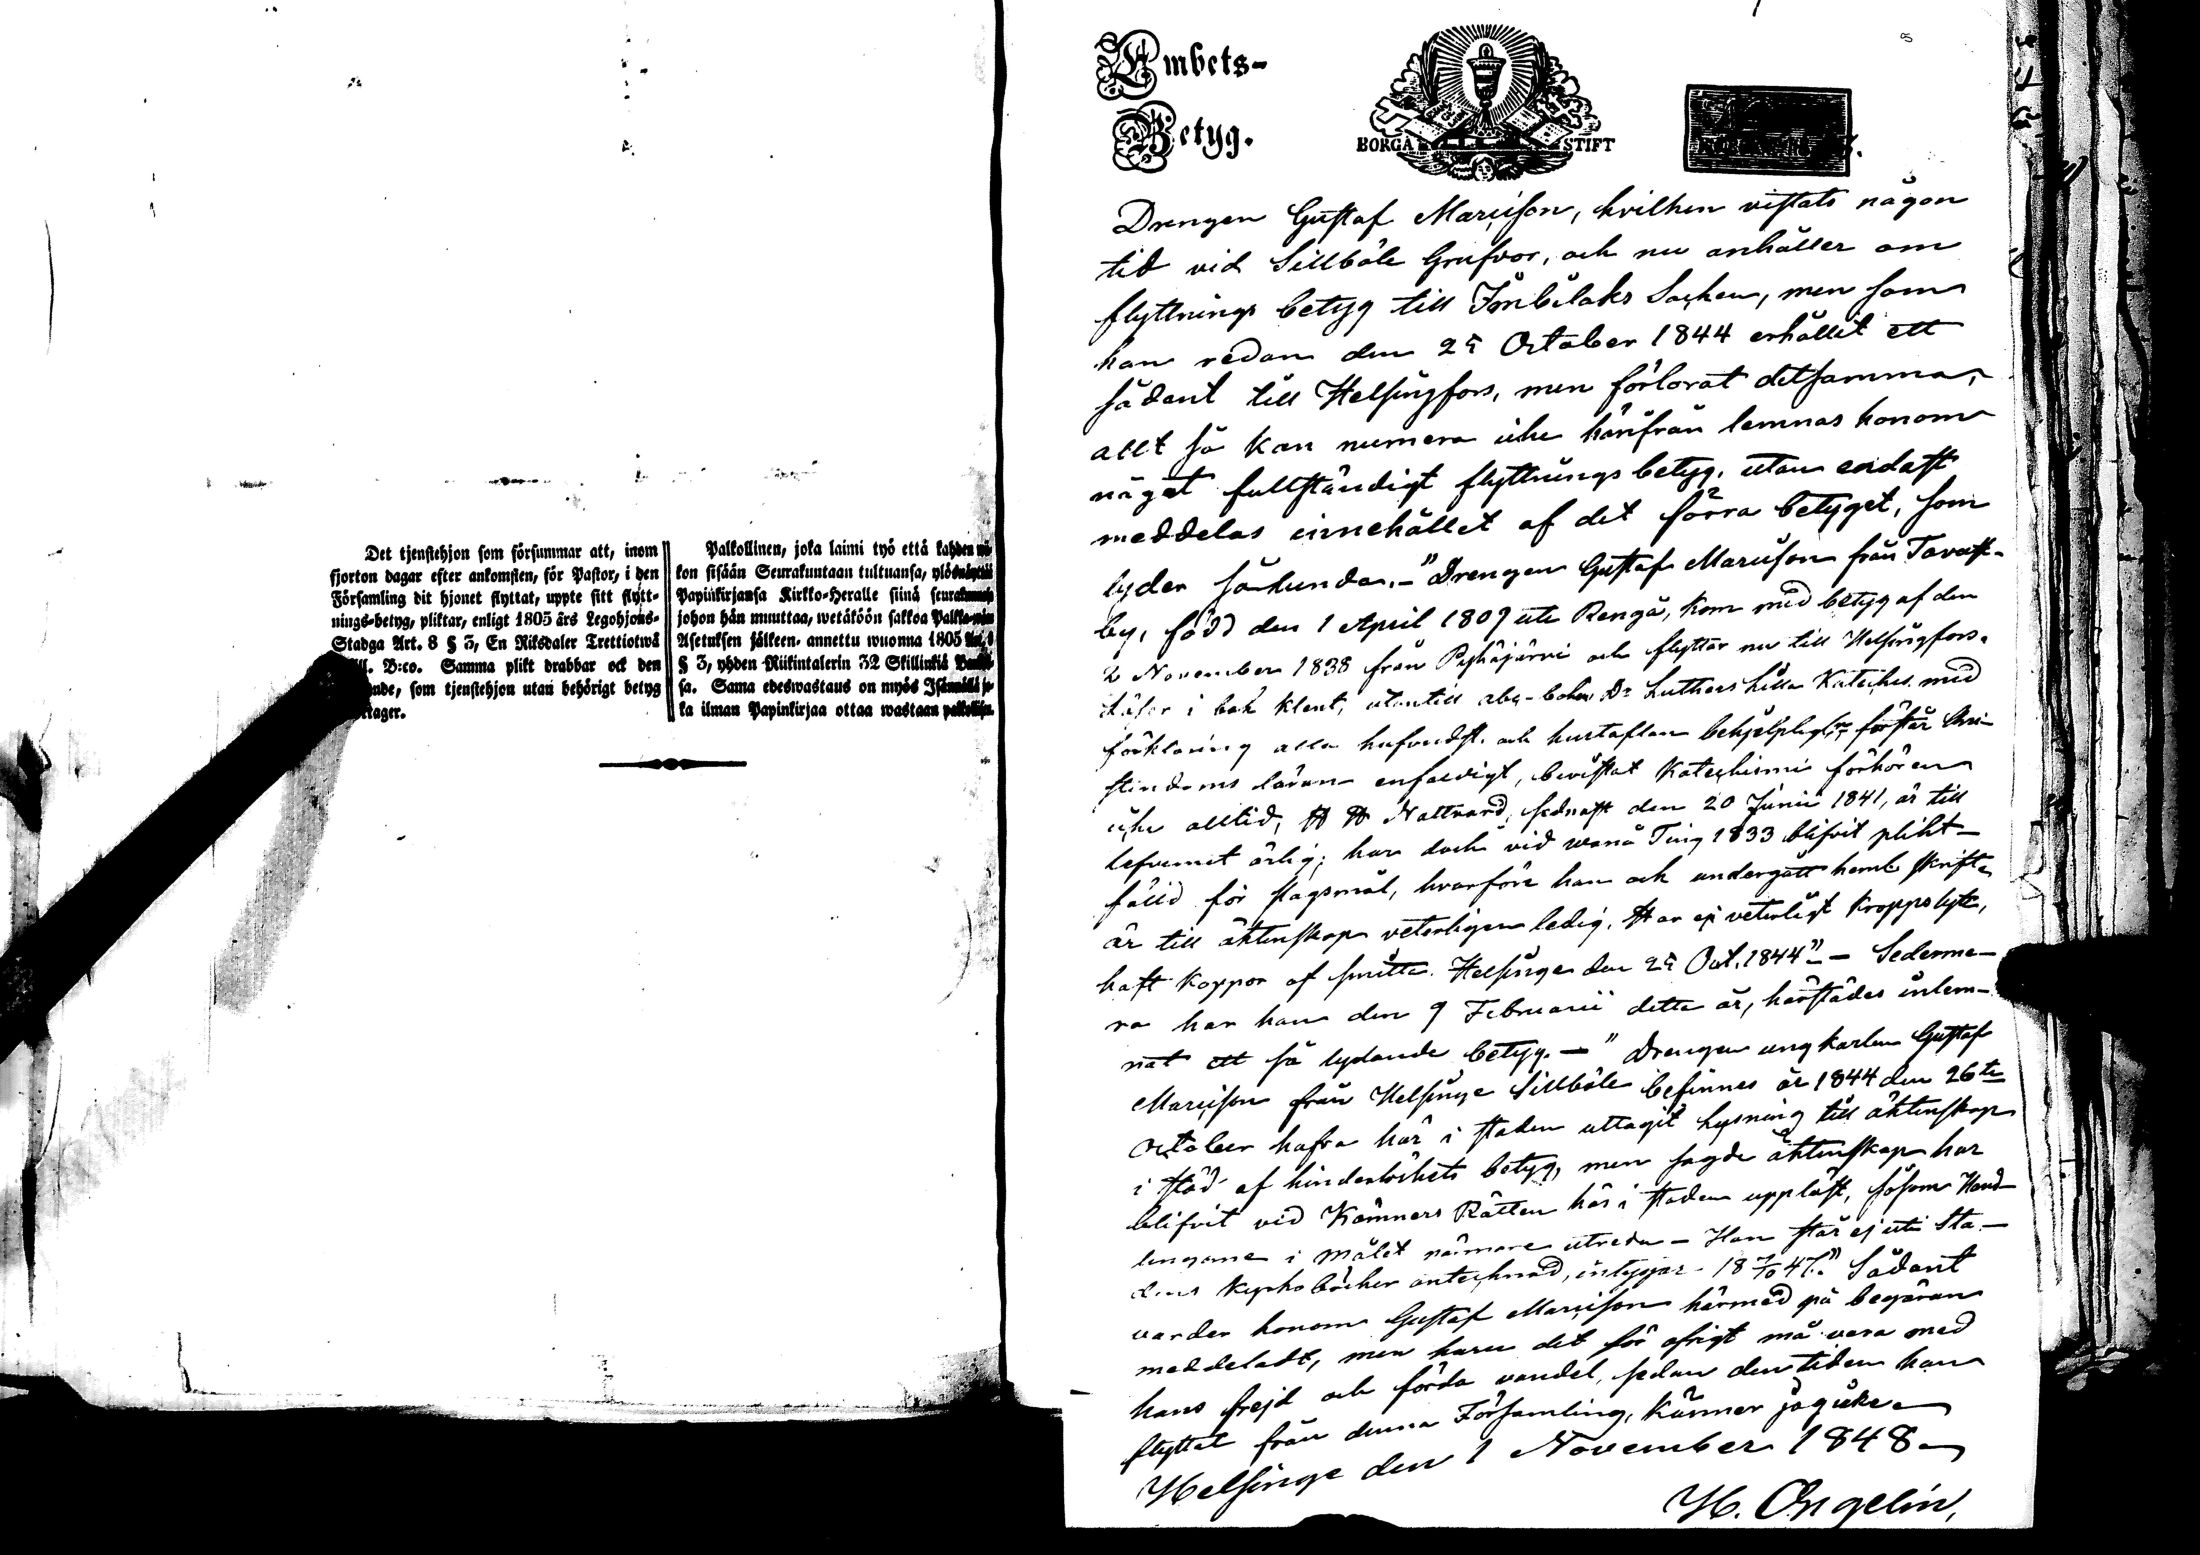 Det tjenstehjon som försummar att, inom
fjorton dagar efter ankomsten, för Pastor, i den
Församling dit hjonet flyttat, uppte sitt flytt-
nings-betyg, pliktar, enligt 1805 års Legohjons-
Stadga Art. 8 § 3, En Riksdaler Trettiotwå
B:co. Samma plikt drabbar ock den
som tjenstehjon utan behörigt betyg
Palkollinen, joka laimi työ että kahden
kon sisään Seurakuntaan tultuansa,
Papinkirjansa Kirkko-Heralle siinä
johon hän muuttaa, wetäköön sakkoa
Asetuksen jälkeen annettu wuonna 1805
§ 3, yhden Riikintalerin 32 Skillinkiä
sa. Sama edeswastaus on myös
ka ilman Papinkirjaa ottaa wastaan
Embets-
Betyg.
BORGÅ STIFT
Drengen Gustaf Mariison, hvilken vistats någon
tid vid Sillböle Grufvor, och nu anhåller om
flyttnings betyg till Imbilaks Socken, men som
han redan den 25 October 1844 erhållit ett
sådant till Helsingfors, men förlorat detsamma,
allt så kan numera icke härifrån lemnas honom
något fullständigt flyttnings betyg, utan endast
meddelas innehållet af det förra betyget, som
lyder sålunda. – "Drengen Gustaf Mariison från Tavast-
by, född den 1 April 1807 uti Rengå, kom med betyg af den
2 November 1838 från Pyhäjärvi och flyttar nu till Helsingfors.
Läser i bok klent, utantill abc-boken Dr Luthers Lilla Kateches med
förklaring alla hufvudst. och hustaflan behjelpligt, förstår Chri-
stindoms läran enfaldigt, bevistat Katechismi förhören
icke alltid, H H Nattvard, sednast den 20 Junii 1841, är till
lefvernet ärlig; har dock vid Wånå Ting 1833 blifvit plikt-
fälld för slagsmål, hvarföre han ock undergått heml. skrift,
är till äktenskap veterligen ledig. Har ej veterligt kroppslyte,
haft koppor af smitta. Helsinge den 25 Oct. 1844" – Sederme-
ra har han den 9 Februarii detta år, härstädes inlem-
nat ett så lydande betyg. – "Drengen ungkarlen Gustaf
Mariison från Helsinge Sillböle befinnes år 1844 den 26te
October hafva här i staden uttagit Lysning till äktenskap
i stöd af hinderlöshets betyg, men sagde äktenskap har
blifvit vid Kämners Rätten här i staden upplöst, såsom Hand-
lingarne i målet närmare utreda – Han står ej uti Sta-
dens kyrkoböcker antecknad, intygar 18 7/10 47." Sådant
varder honom Gustaf Mariison härmed på begäran
meddeladt, men huru det för öfrigt må vara med
hans frejd och förda vandel, sedan den tiden han
flyttat från denna Församling, känner jag icke.
Helsinge den 1 November 1848.